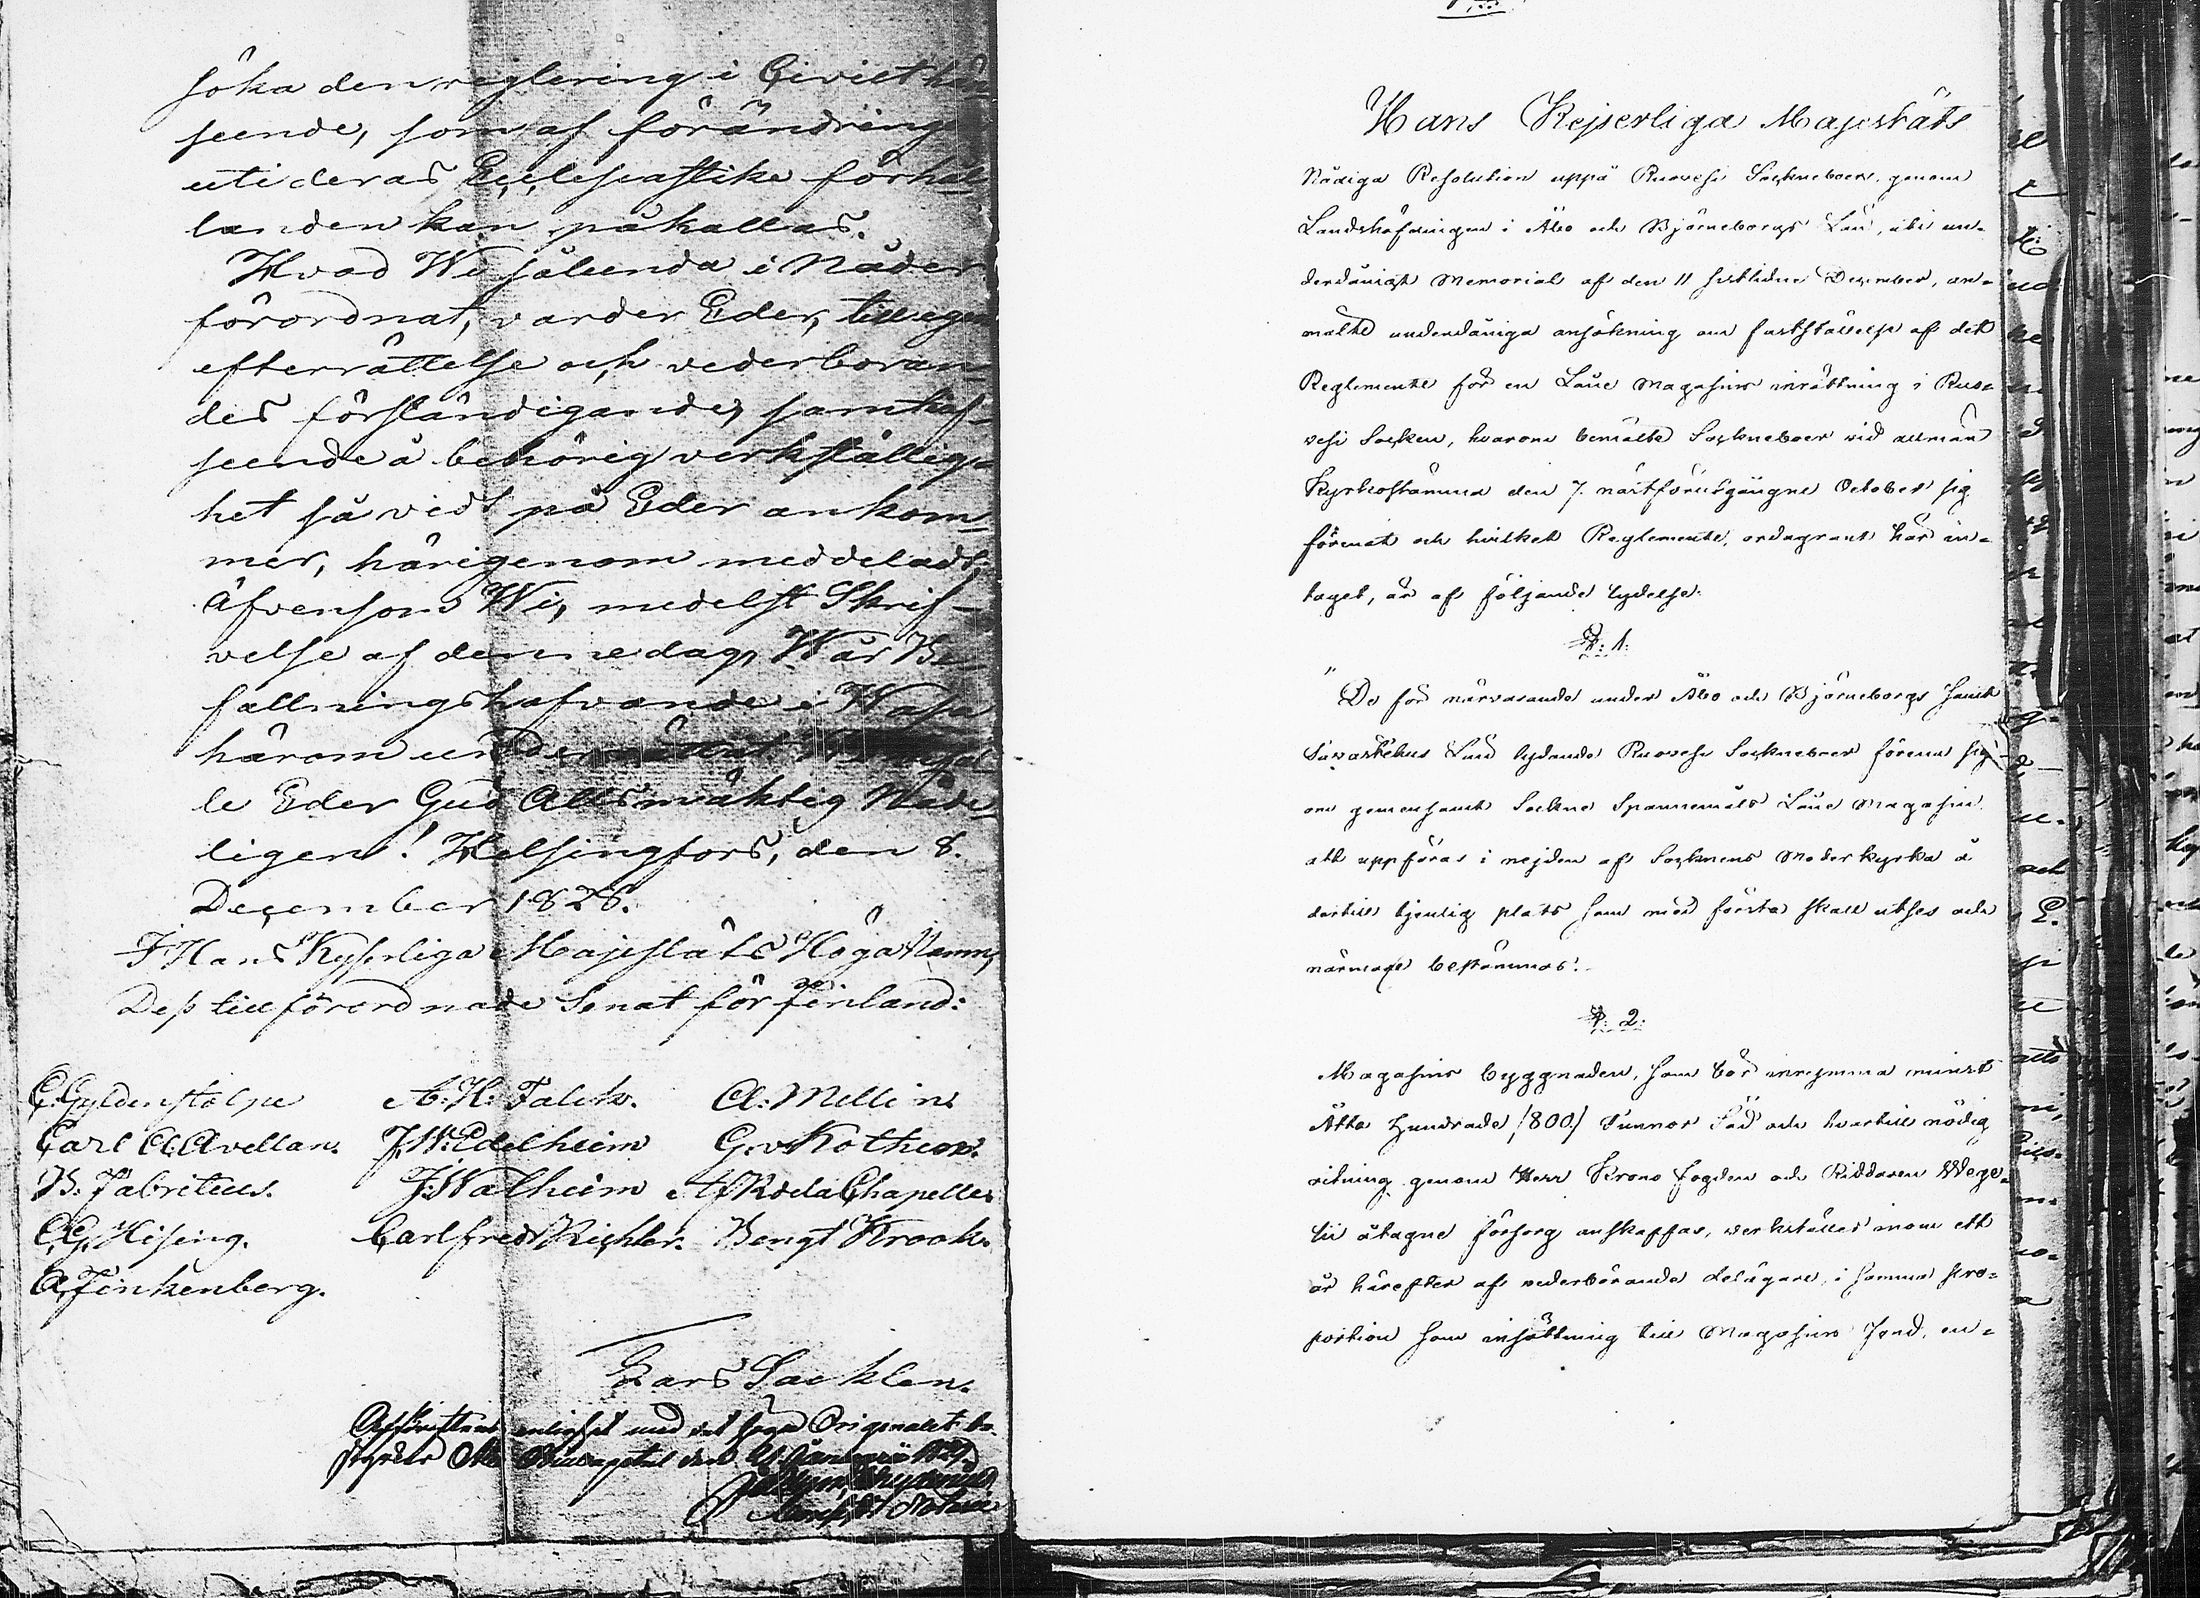 söka den reglering i Civilt hän-
seende, som af förändring
uti deras Ecclesiastike förhål-
landen kan påkallas.
Hvad Wi sålunda i Nåder
förordnat, varder Eder, till egen
efterrättelse och vederböran-
des förständigande, samt haf-
seende å behörig verkställig-
het så vidt på Eder ankom-
mer, härigenom meddeladt;
Äfvensom Wi, medelst Skrif-
velse af denne dag, Wår Be-
fallningshafvande i Wasa
härom
le Eder Gud Allsmäktig Nåde-
ligen! Helsingfors, den 8.
December 1828.
I Hans Kejserliga Majestäts Höga Namn,
Dess tillförordnade Senat för Finland:
C. Gyldenstolpe A. H. Falck. A. Mellin.
Carl A. Avellan. J. W. Edelheim G. v. Kothen.
B. Fabritius. J. Walheim Af R. de la Chapelle.
C. G. Hising. Carl Fredr Richter. Bengt Krook.
A. Finkenberg.
Lars Sacklen.
Afskriftens enlighet med det höga Originalet be-
styrker Åbo Domcapitel den 21 Januarii 1829.
Notarie
Hans Kejserliga Majestäts
Nådiga Resolution uppå Ruovesi Sockneboer, genom
Landshöfdingen i Åbo och Björneborgs Län, uti un-
derdånigt Memorial af den 11 sistlidne December, an-
mälte underdåniga ansökning om fastställelse af det
Reglemente för en Låne Magasins inrättning i Ruo-
vesi Socken, hvarom bemälte Sockneboer vid allmän
Kyrkostämma den 7. nästförutgångne October sig
förenat och hvilket Reglemente, ordagrant här in-
taget, är af följande lydelse:
§: 1.
"De för närvarande under Åbo och Björneborgs samt
Tavastehus Län lydande Ruovesi Sockneboer förena sig
om gemensamt Sockne Spannemåls Låne Magasin
att uppföras i nejden af Socknens Moderkyrka å
dertill tjenlig plats som med första skall utses och
närmare bestämmas.
§: 2.
Magasins byggnaden, som bör inrymma minst
Åtta Hundrade /800/ Tunnor Säd och hvartill nödig
ritning genom Herr Krono Fogden och Riddaren Wege-
lii åtagne försorg anskaffas, verkställes inom ett
år härefter af vederbörande delägare, i samma pro-
portion som insättning till Magasins Fond, en-